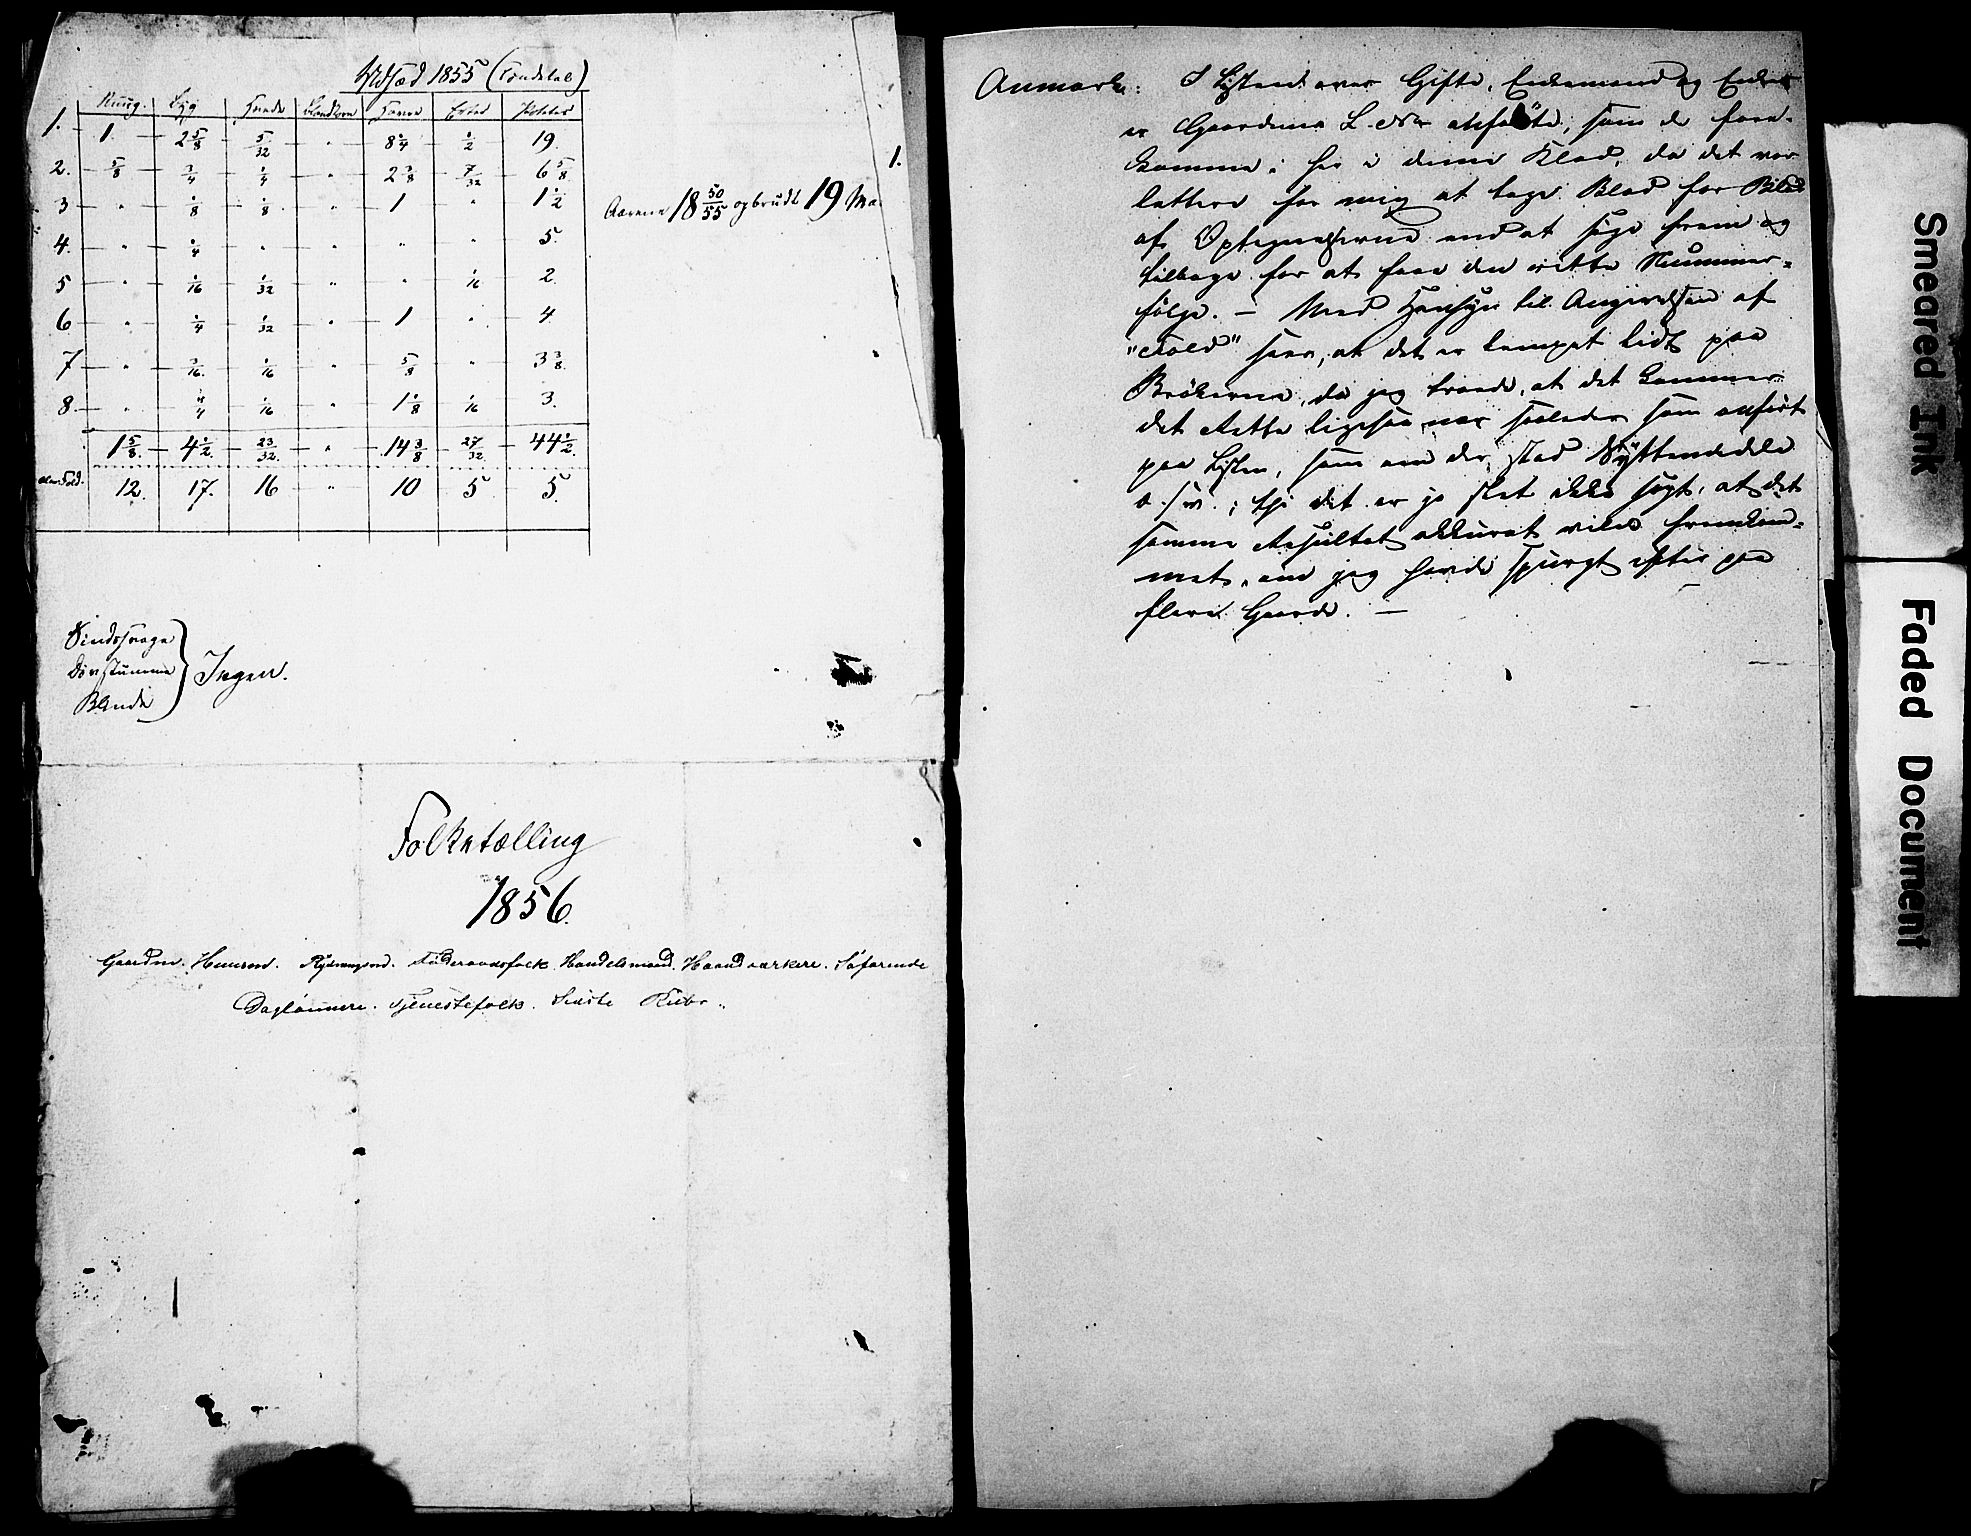 Udsæd 1855 (Tøndetal)
Rug. Byg Hvede Blandkorn Havre Erter Poteter
1. 1. 2 5/8 5/32 " 8 1/4 1/2 19.
2. 5/8 3/4 1/4 " 2 3/8 7/32 6 5/8.
3 " 1/8 1/8 " 1 " 1 1/2
4. " 1/4 " " " " 5.
5 " 1/16 1/32 " " 1/16 2.
6 " 1/4 1/32 " 1 " 4.
7 " 3/16. 1/16 " 5/8 " 3 3/8.
8. " 1/4 1/16 " 1 1/8 1/16 3.
1 5/8. 4 1/2. 23/32. " 14 3/8 27/32 44 1/2.
Fold. 12. 17. 16 " 10 5 5.
Aarene 18 50/55 opbrudt 19 Ma
1.
Sindssvage
Døvstumme
Blinde
Ingen.
Folketælling
1856.
Gaardm. Huusm. Rydningsm. Føderaadsfolk. Handelsmænd. Haandværkere. Søfarende
Dagleiere. Tjenestefolk. Sidste Rubr.
Anmærk: I Listen over Gifte, Enkemænd og Enker
er Gaardenes L. No anførte, som de fore-
komme her i denne Klad, da det var
lettere for mig at tage Blad for Blad
af Optegnelserne end at søge frem og
tilbage for at faae den rette Nummer-
følge. — Med Hensyn til Angivelsen af
"Fold" sees, at det er lempet lidt paa
Brøkerne, da jeg troede, at det kommer
det Rette ligesaa nær saaledes som anført
paa Listen, som om der stod Syttendedele
o. s. v.; thi det er jo slet ikke sagt, at det
samme Resultat akkurat vilde fremkom-
met, om jeg havde spurgt efter paa
flere Gaarde. —
Smeared Ink
Faded Document